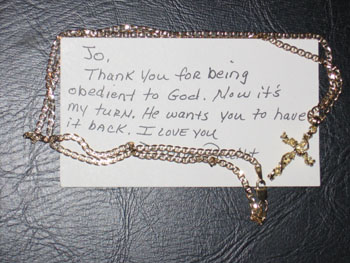 Jo,
Thank you for being
obedient to God. Now it's
my turn. He wants you to have
it back. I love you